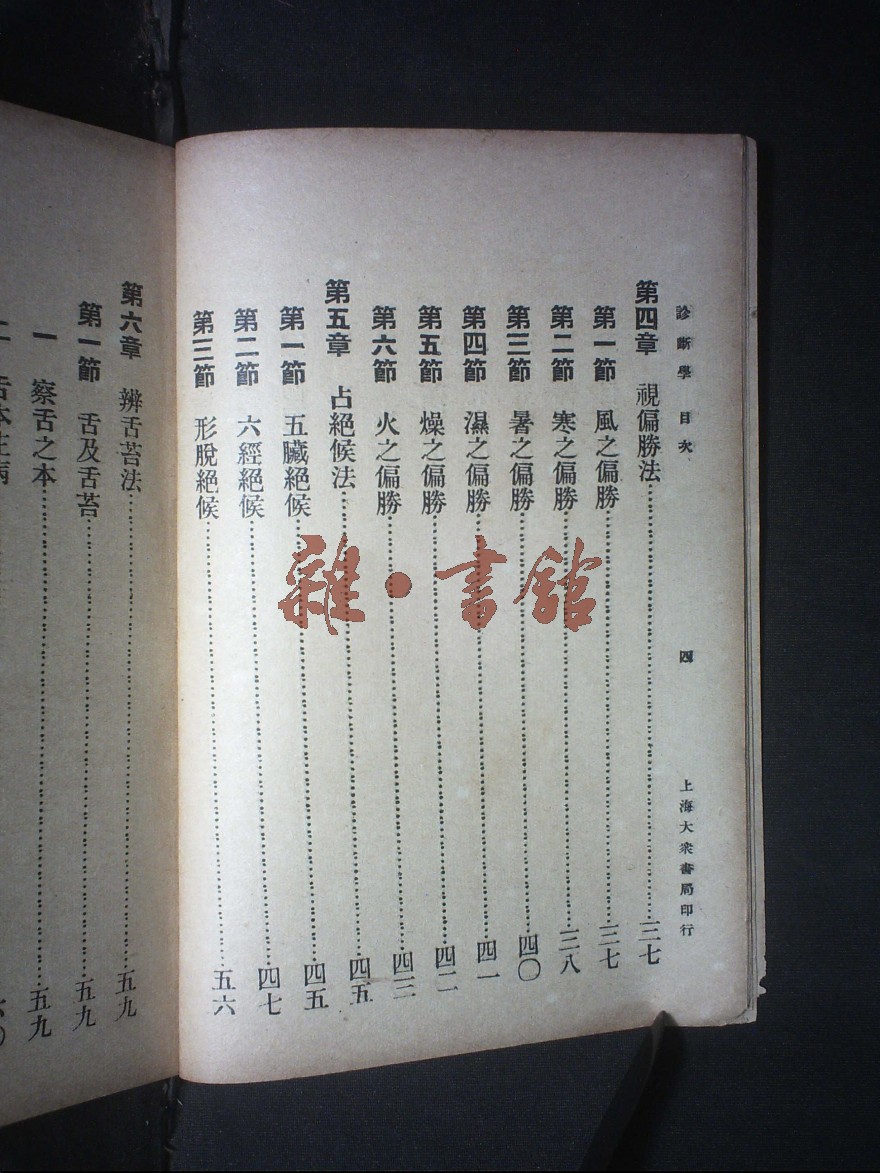 診斷學 目次 四 上海大衆書局印行
第四章 視偏勝法……三七
第一節 風之偏勝……三七
第二節 寒之偏勝……三八
第三節 暑之偏勝……四〇
第四節 濕之偏勝……四一
第五節 燥之偏勝……四二
第六節 火之偏勝……四三
第五章 占絕候法……四五
第一節 五臟絕候……四五
第二節 六經絕候……四七
第三節 形脫絕候……五六
第六章 辨舌苔法……五九
第一節 舌及舌苔……五九
一 察舌之本……五九
雜·書館